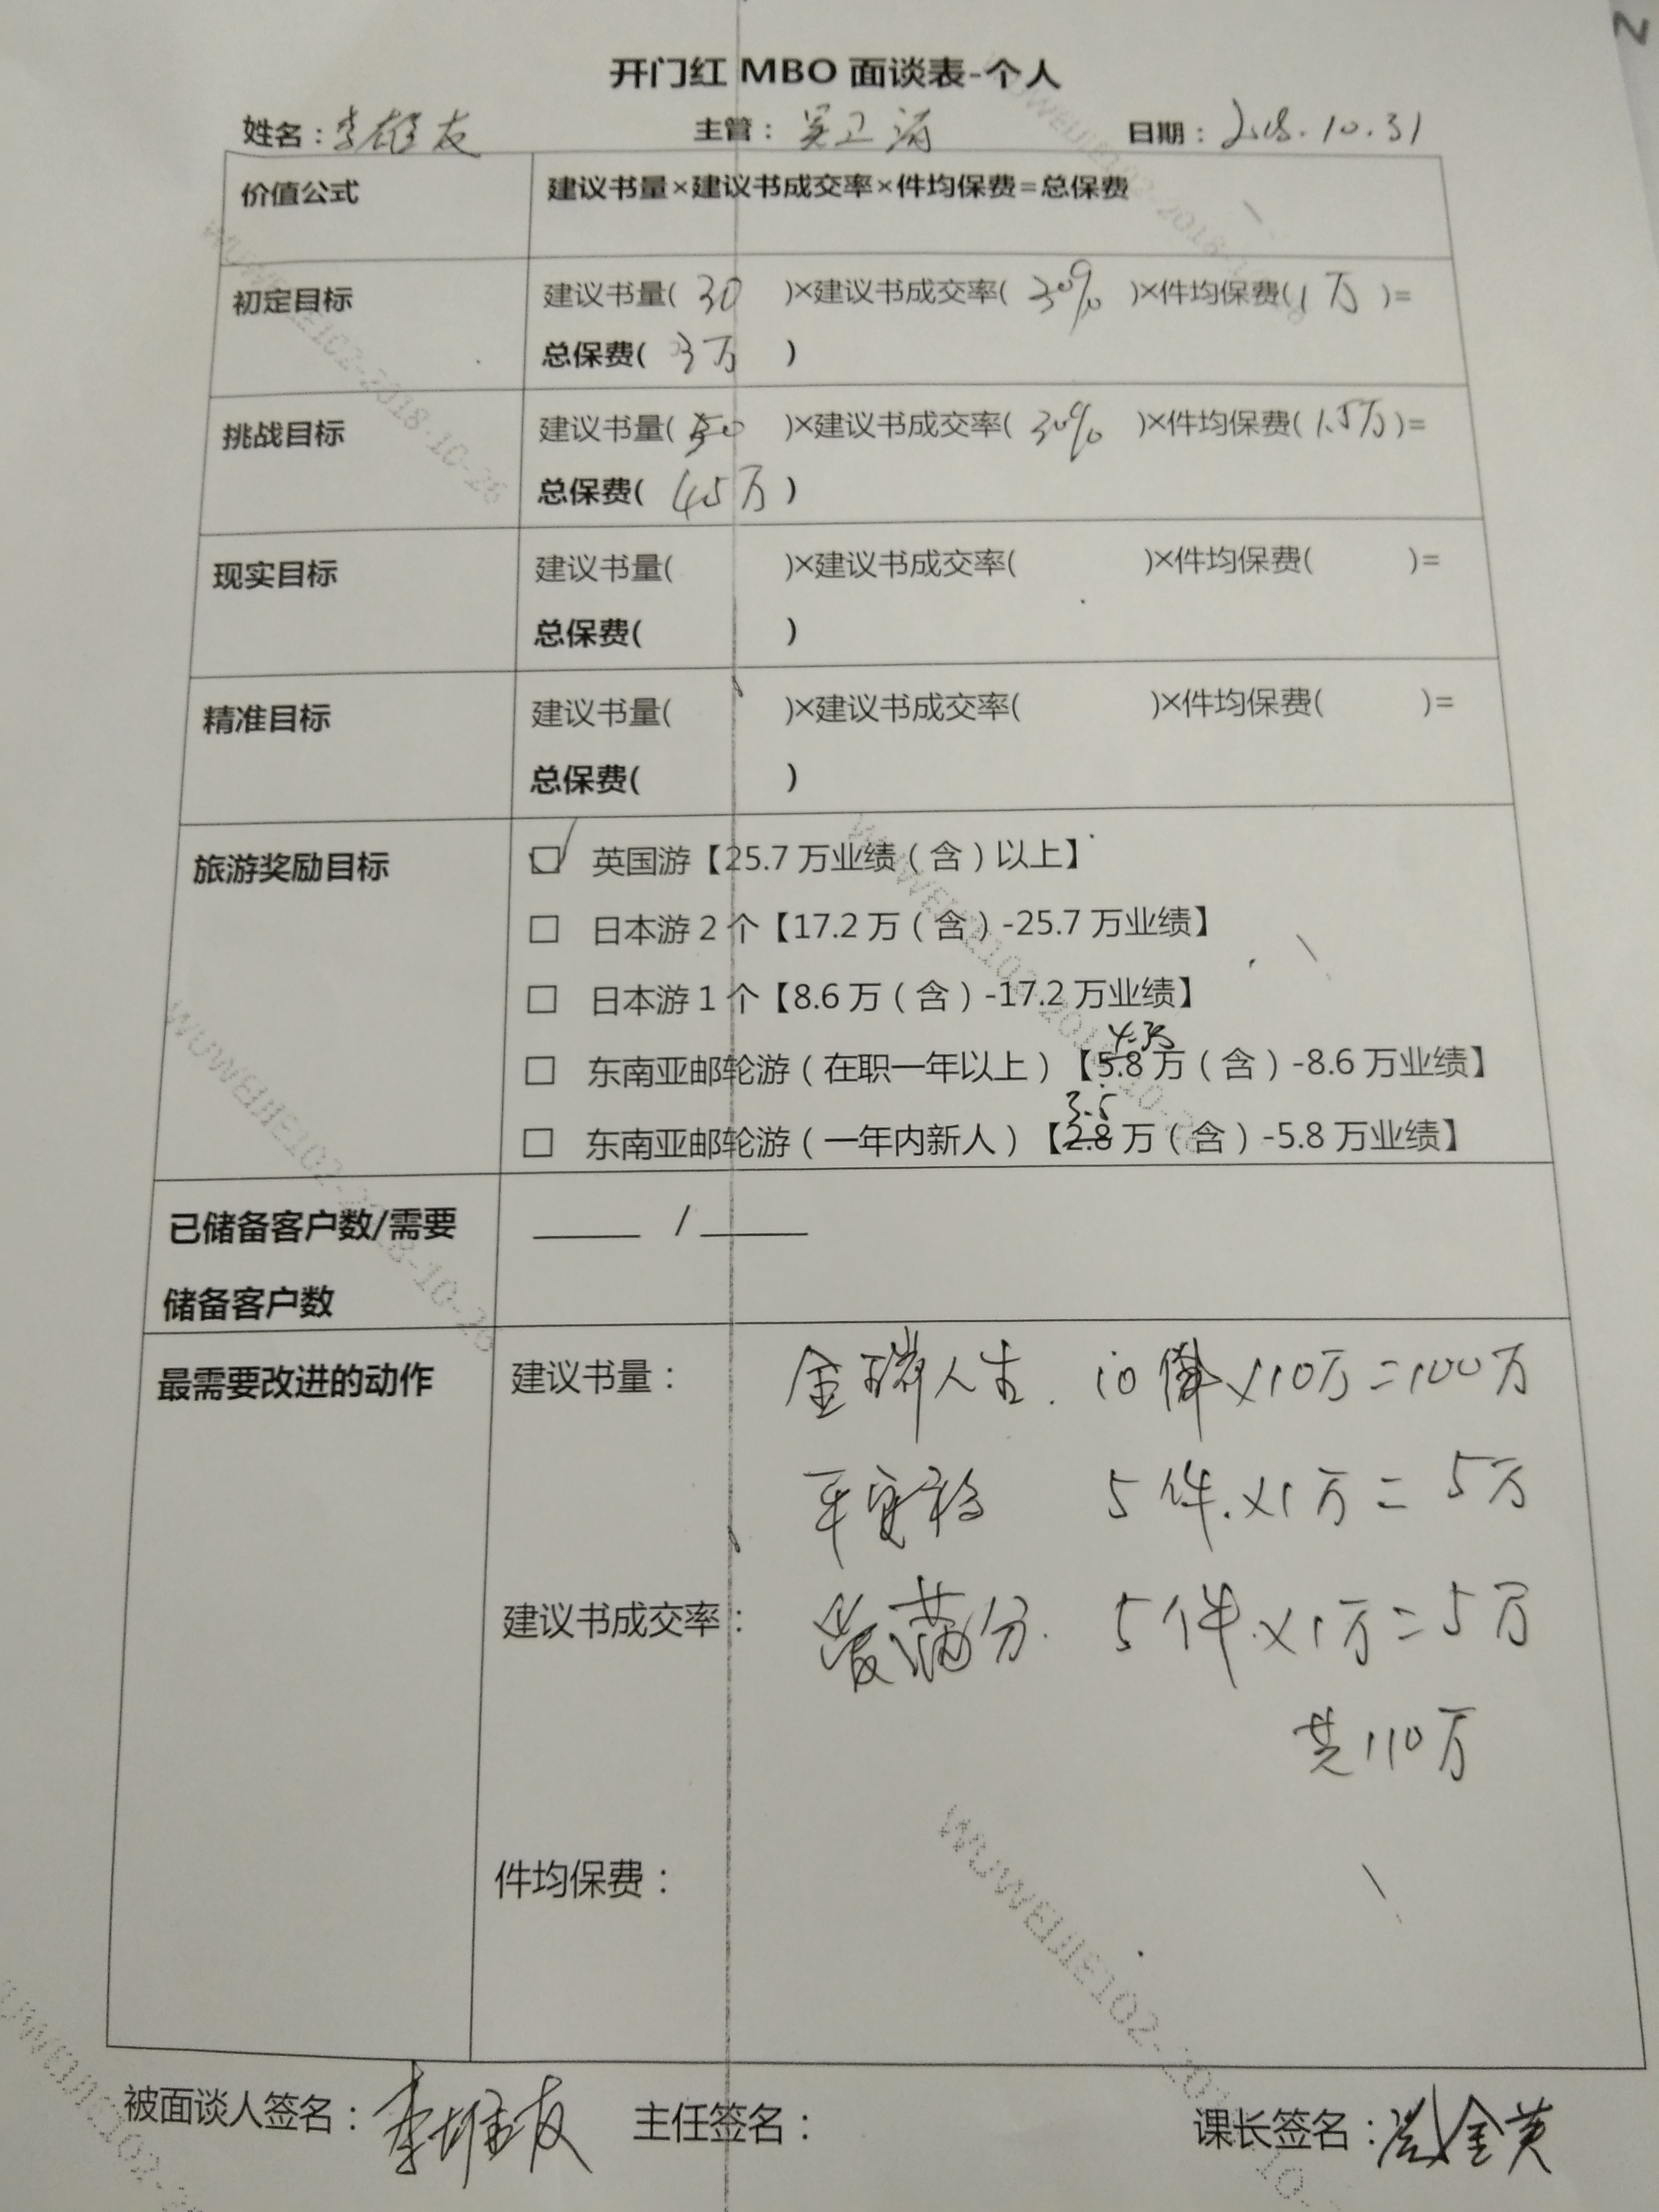 开门红 MBO 面谈表-个人
姓名：李雄友 主管：吴卫 日期：2018.10.31
价值公式 建议书量×建议书成交率×件均保费=总保费
初定目标 建议书量( 30 )×建议书成交率( 30% )×件均保费( 1万 )=
总保费( 3万 )
挑战目标 建议书量( 50 )×建议书成交率( 30% )×件均保费( 1.5万 )=
总保费( 45万 )
现实目标 建议书量( )×建议书成交率( )×件均保费( )=
总保费( )
精准目标 建议书量( )×建议书成交率( )×件均保费( )=
总保费( )
旅游奖励目标 ☑ 英国游【25.7 万业绩（含）以上】
□ 日本游 2 个【17.2 万（含）-25.7 万业绩】
□ 日本游 1 个【8.6 万（含）-17.2 万业绩】
□ 东南亚邮轮游（在职一年以上）【5.8 万（含）-8.6 万业绩】
3.5
□ 东南亚邮轮游（一年内新人）【2.8 万（含）-5.8 万业绩】
已储备客户数/需要 _____ / _____
储备客户数
最需要改进的动作 建议书量： 金瑞人生. 10件×10万=100万
平安福 5件.×1万=5万
建议书成交率： 爱满分. 5件×1万=5万
共110万
件均保费：
被面谈人签名：李雄友 主任签名： 课长签名：金英
WUWEIJIE102-2018-10-26